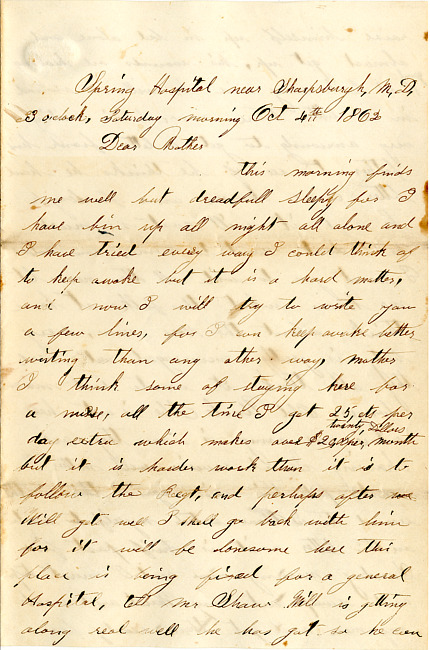 Spring Hospital near Sharpsburgh, M.D,
3 oclock, Saturday morning Oct 4th 1862
Dear Mother
this morning finds
me well but dreadfull sleepy for I
have bin up all night all alone and
I have tried every way I could think of
to keep awake but it is a hard matter,
and now I will try to write you
a few lines, for I can keep awake better
writing than any other way, mother
I think some of staying here for
a nurse, all the time I get 25, cts per
day extra which makes twenty dollars per, month
but it is harder work than it is to
follow the Regt, and perhaps after
Will get well I shall go back with him
for it will be lonesome here this
place is being fixed for a general
Hospital, tell Mr Shaw Will is getting
along real well he has got so he can